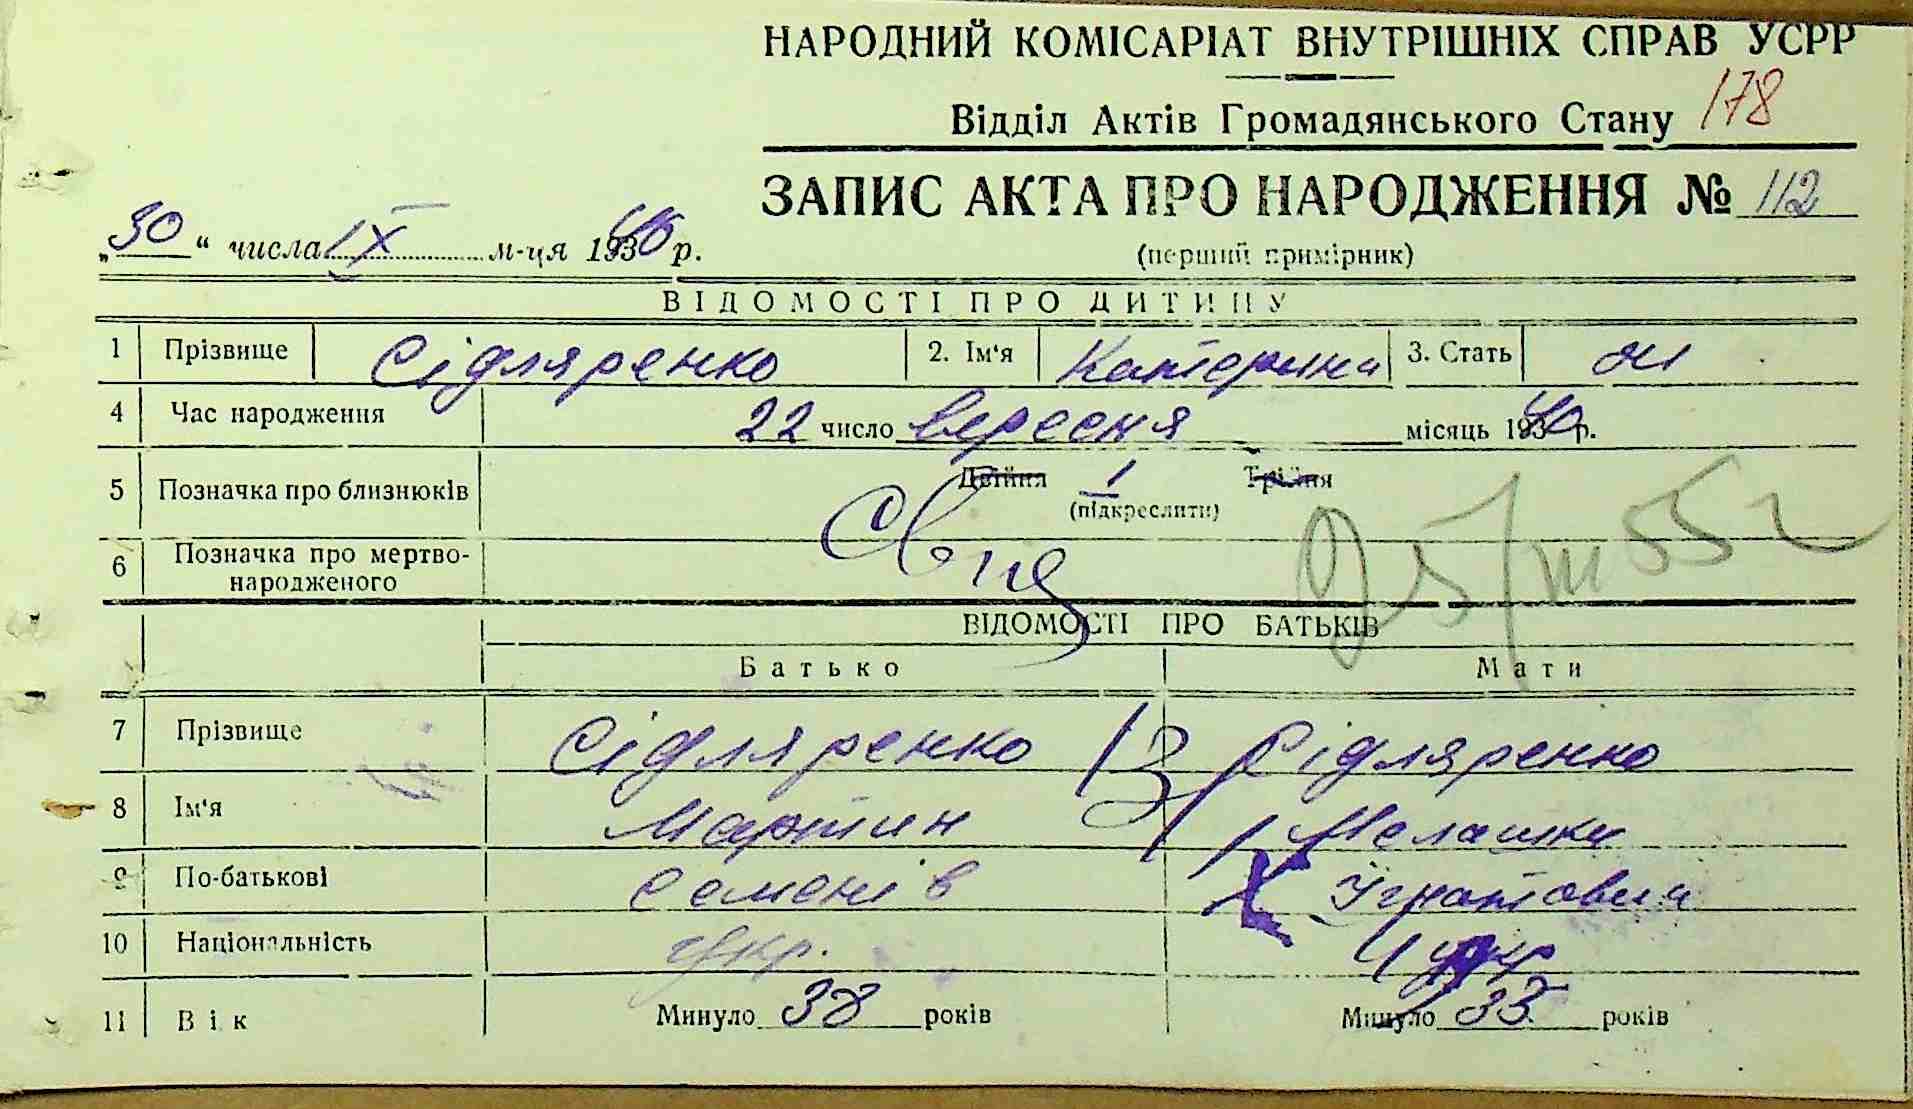 НАРОДНИЙ КОМІСАРІАТ ВНУТРІШНІХ СПРАВ УСРР
Відділ Актів Громадянського Стану 178
ЗАПИС АКТА ПРО НАРОДЖЕННЯ № 112
„30“ числа IX м-ця 1940 р.
(перший примірник)
ВІДОМОСТІ ПРО ДИТИНУ
1 Прізвище Сідляренко 2. Ім'я Катерина 3. Стать
4 Час народження 22 число вересня місяць 1940 р.
5 Позначка про близнюків Двійня 1 Трійня
(підкреслити)
6 Позначка про мертво-
народженого
ВІДОМОСТІ ПРО БАТЬКІВ
Батько Мати
7 Прізвище Сідляренко Сідляренко
8 Ім'я Мартин Мелашка
9 По-батькові Семенів Ігнатовна
10 Національність Укр. укр
11 Вік Минуло 38 років Минуло 33 років